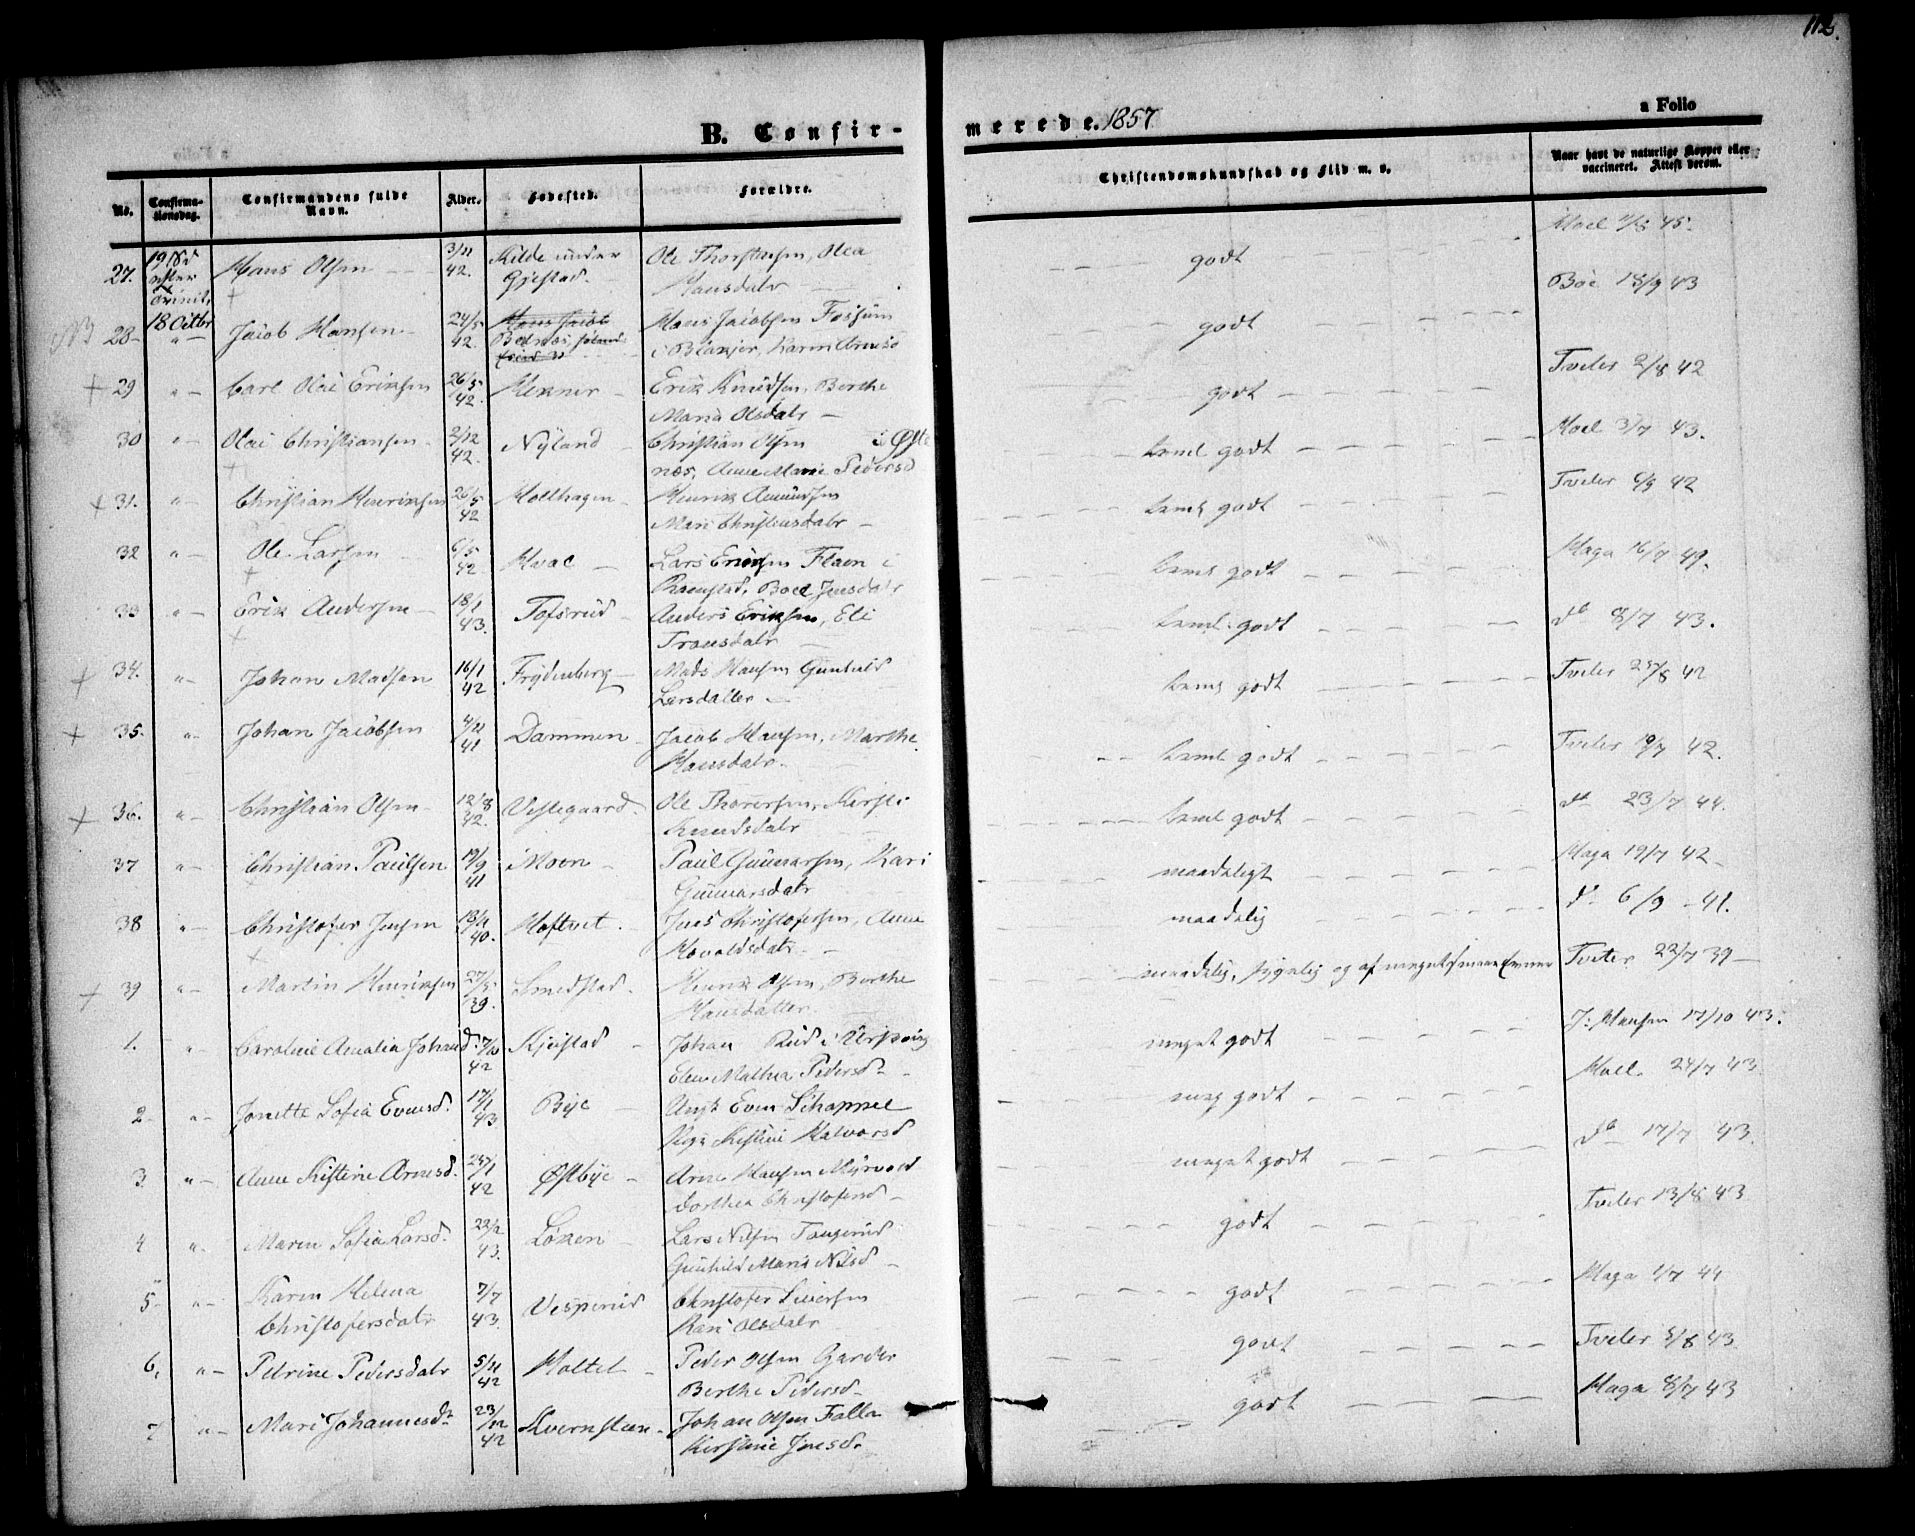 112.
B. Confirmerede. 1857
a Folio
No. Confirmationsdag. Confirmandens fulde Navn. Alder. Fødested. Forældre. Christendomskundskab og Flid m. v. Naar havt de naturlige Kopper eller vaccineret. Attest derom.
27. 19 Sd efter Trinit. 18 Octbr Hans Olsen 3/11 42. Kilde under Gjestad. Ole Thorstensen, Olea Hansdatr godt Moel 45.
28 " Jacob Hansen 24/5 42. Hans Jacobsen Fossum i Blakjer, Karen godt Boe 18/9 43
29 " Carl Olai Eriksen 26/5 42. Hexner Erik Knudsen, Berthe Maria Olsdatr godt Tveter 2/8 42
30 " Olai Christiansen 2/12 42. Nyland Christian Olsen i Østenæs, Anne Marie Pedersd taml godt Moel 3/7 43.
31. " Christian Henriksen 26/5 42 Holthagen Henrik Amundsen Mari Christensdatr taml godt Tveter 6/9 42
32 " Ole Larsen 6/5 42 Hval Lars Eriksen Flaen i Ramstad, Boel Jensdatr taml godt Haga 16/7 49.
33 " Erik Andersen 18/1 43. Tofsrud Anders Eriksen, Eli Tronsdatr taml godt do 8/7 43.
34. " Johan Madsen 16/1 42 Frydenberg Mads Hansen Gunhild Larsdatter taml godt Tveter 25/8 42
35. " Johan Jacobsen 4/11 41 Dammen Jacob Hansen, Marthe Hansdatr. taml godt Tveter 42.
36. " Christian Olsen 12/8 42. Vestegaard. Ole Thorersen, Kirsti Knudsdatr taml godt do 23/7 44.
37 " Christian Paulsen 19/9 41 Moen Paul Gunnarsen, Kari Gunnarsdatr maadeligt Haga 19/7 42
38 " Christofer Jensen 13/11 40. Hoftvet. Jens Christofersen, Anne Hovaldsdatr. maadelig do 6/9 41.
39 " Martin Henriksen 27/5 39. Smedstad. Henrik Olsen, Berthe Hansdatter. maadelig, sygelig og af meget smaae Evner Tveter 22/7 39
1. " Caroline Amalia Johansd. 7/10 42 Kjelstad Johan Rud i Urskoug Elen Mathea Pedersd. meget godt J. Hansen 17/10 43.
2 " Jonette Sofia Evensd. 17/1 43 Bye Ungk Even Schappel Pige Kistine Halvorsd meg godt Moel. 24/7 43
3. " Anne Kistine Arnesd. 25/1 42 Østbye Arne Hansen Myrvold Dorthea Christofersd meget godt do 17/7 43.
4 " Maren Sofia Larsd. 22/2 43. Løken Lars Nilsen Tangerud Gunhild Marie Nilsd godt Tveter 13/8 43
5 " Karen Helena Christofersdatr 7/7 43. Vesperud Christofer Siversen Kari Olsdatr godt Haga 1/7 44
6. " Petrine Pedersdatr 5/11 42 Holtet Peder Olsen Garder Berthe Pedersd. godt Tveter 5/8 43
7 " Mari Johannesdr 23/12 42 Kvernstuen. Johan Olsen Falla Kirstine Jnesd. godt Haga 8/7 43